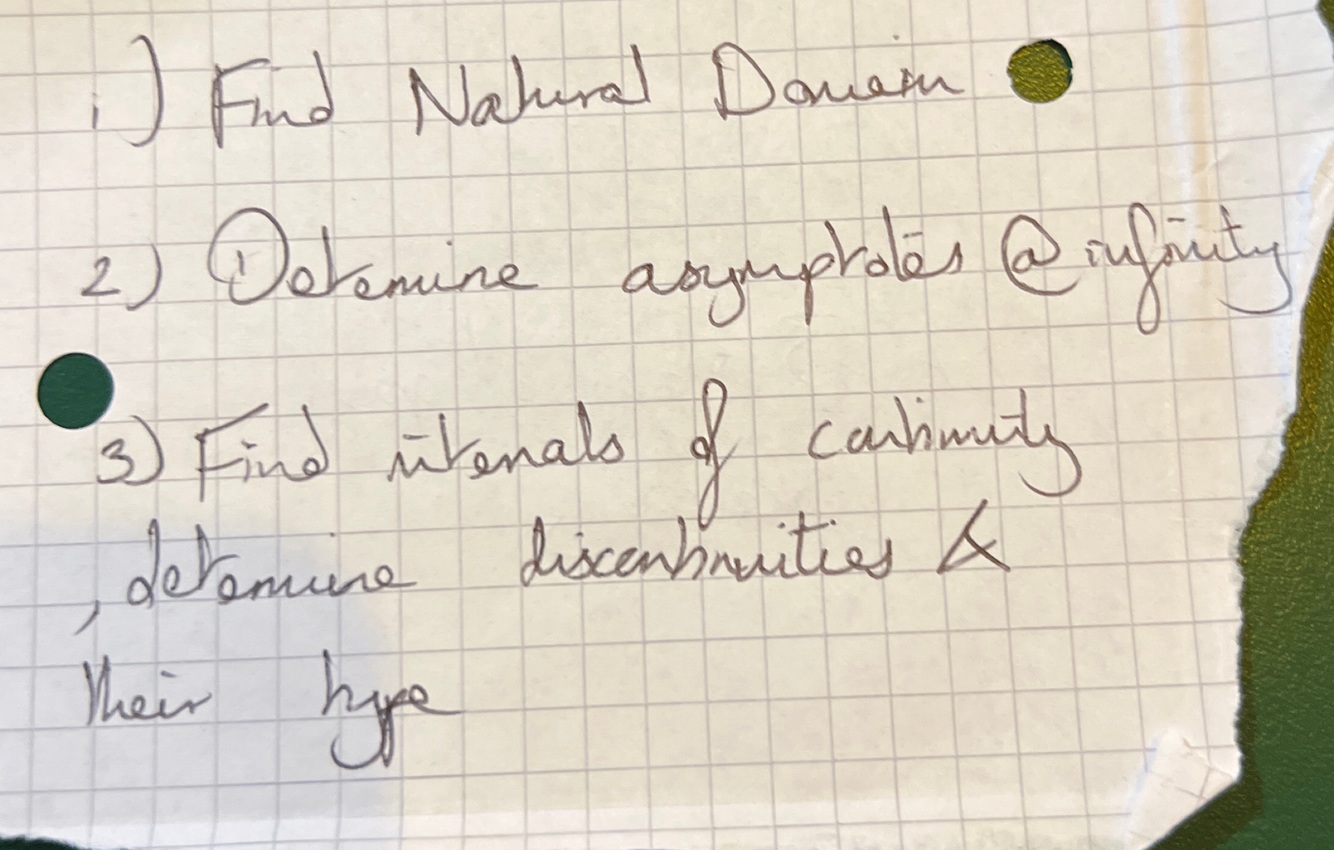 1) Find Natural Domain
2) Determine asymptotes @ infinity
3) Find intervals of continuity
, determine discontinuities &
their type